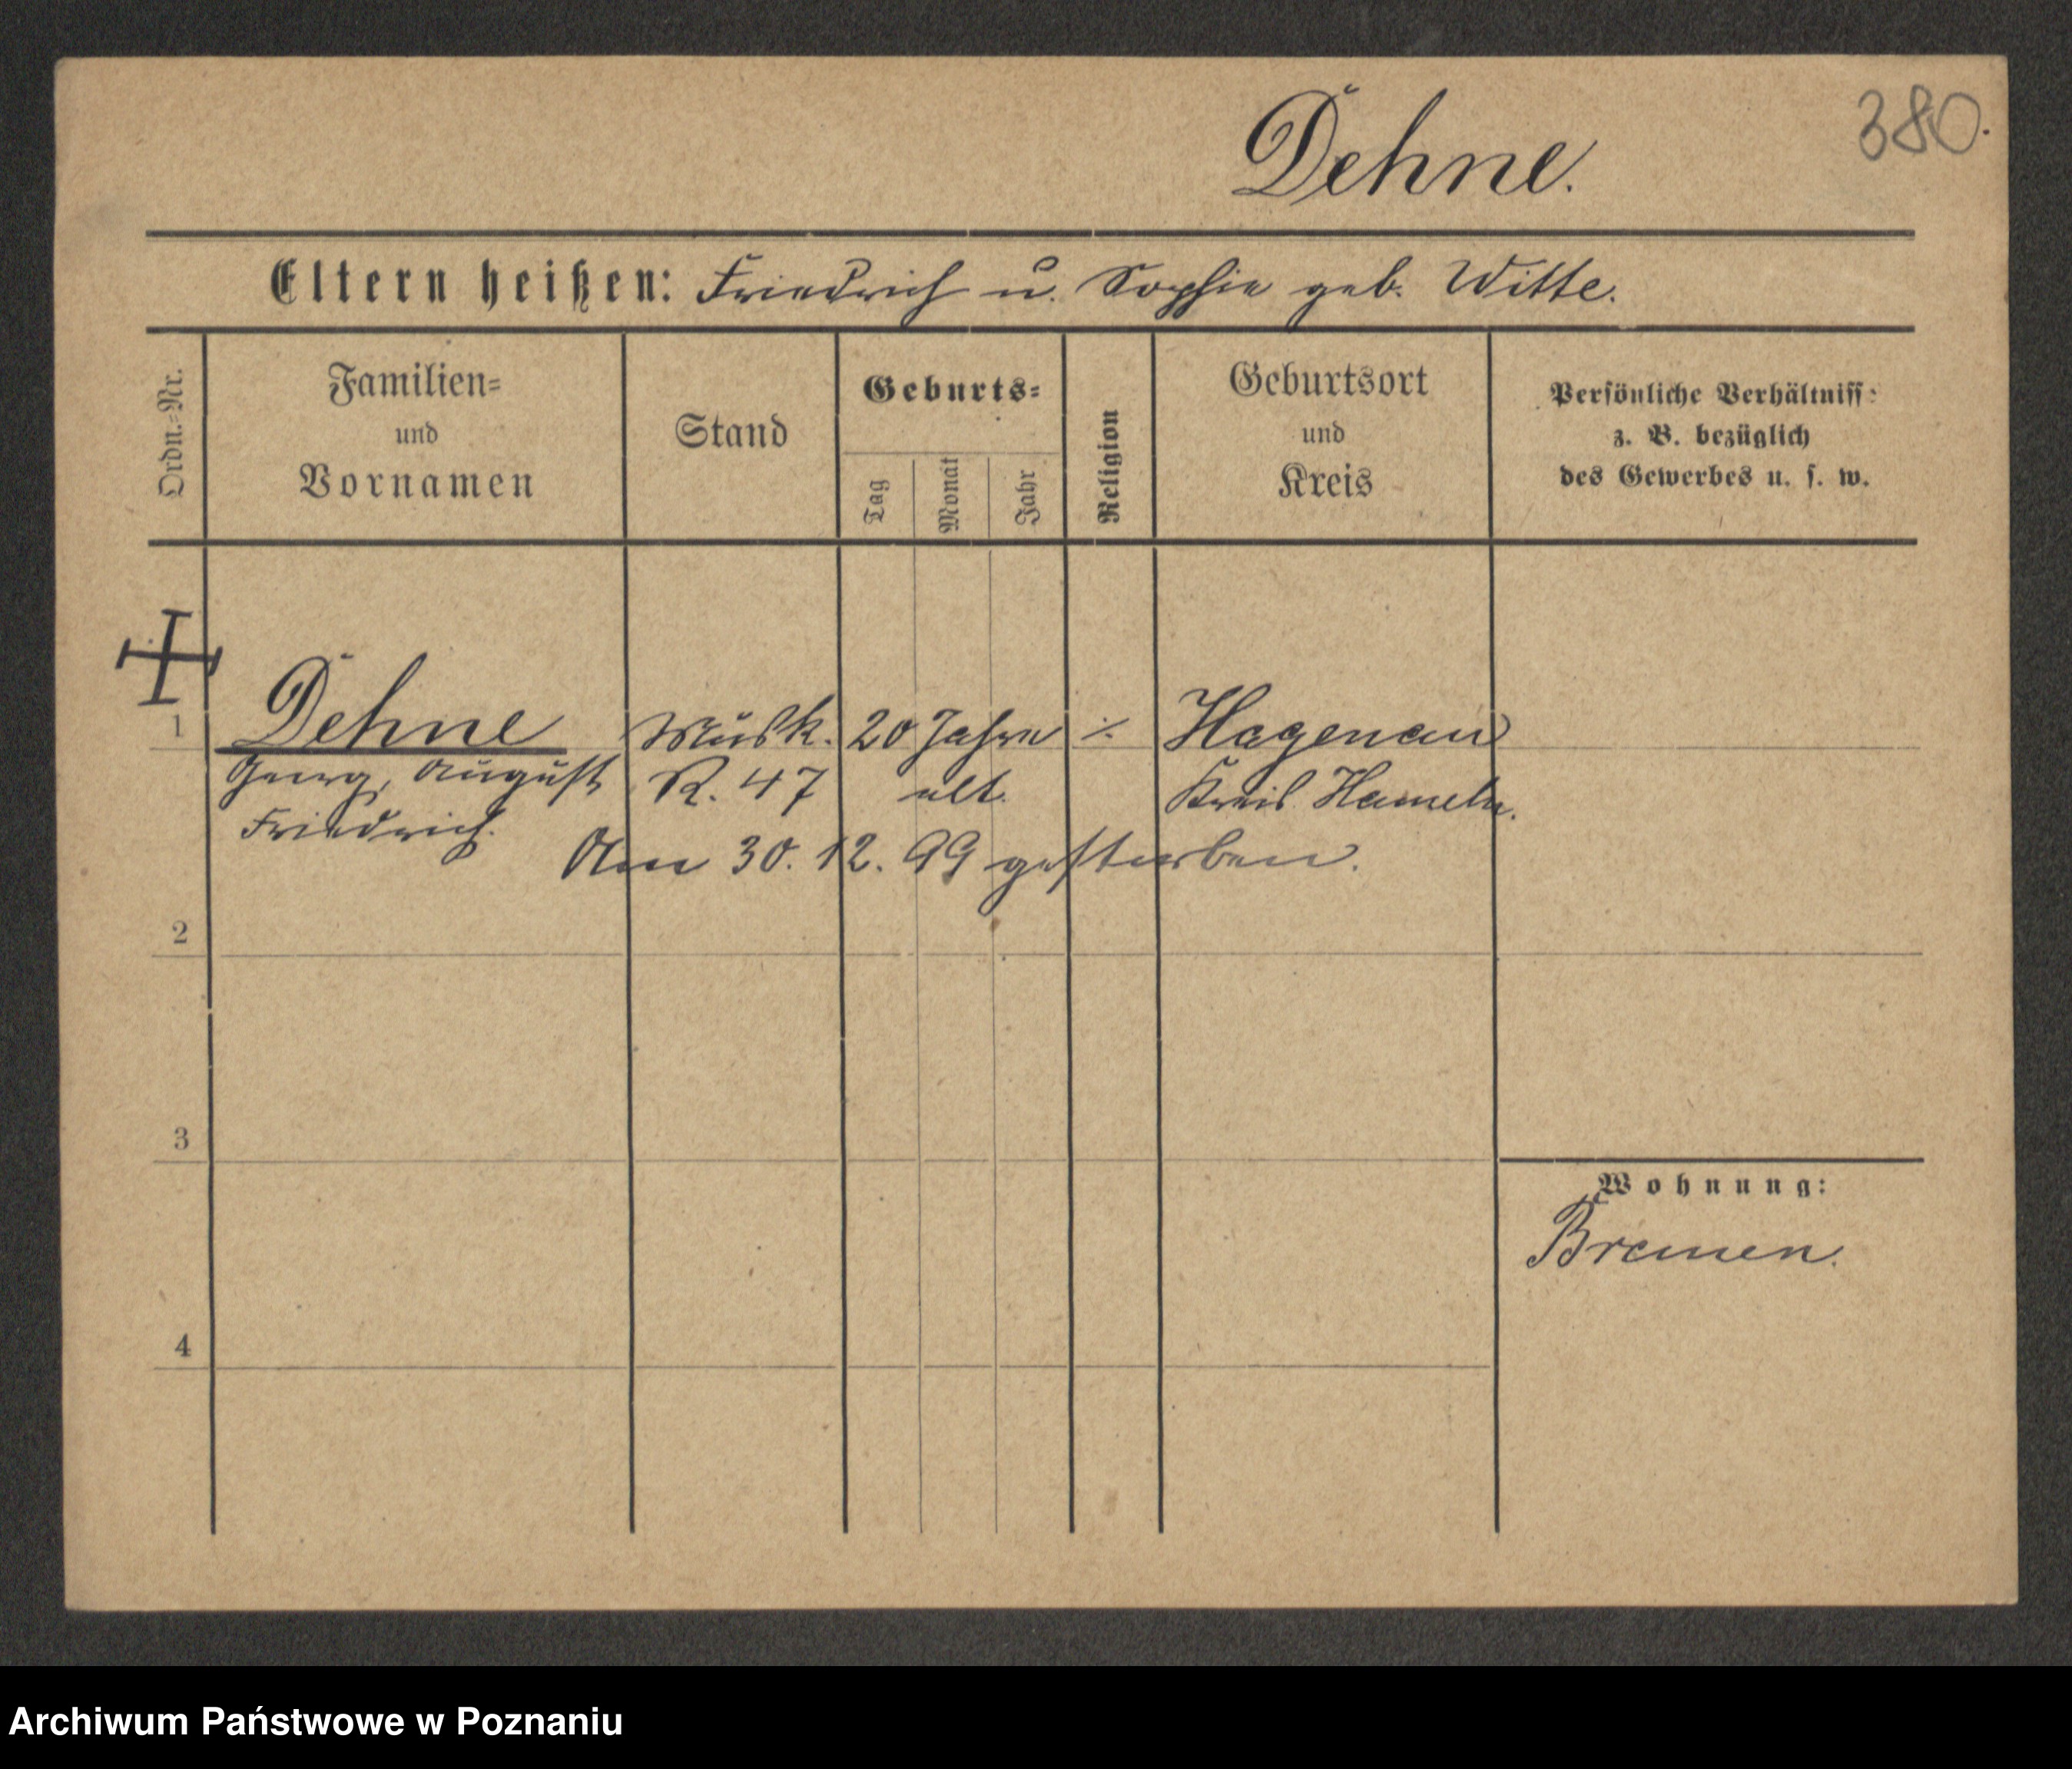 Dehne.
380.
Eltern heißen: Friedrich u. Sophie geb. Witte.
Ordn.=Nr.
Familien=
und
Vornamen
Stand
Geburts=
Tag
Monat
Jahr
Religion
Geburtsort
und
Kreis
Persönliche Verhältniss
z. B. bezüglich
des Gewerbes u. s. w.
1 Dehne Musk. 20 Jahre ./. Hagenau
Georg, August R. 47 alt. Kreis Hameln.
Friedrich.
Am 30. 12. 99 gestorben.
2
3
Wohnung:
Bremen.
4
Archiwum Państwowe w Poznaniu